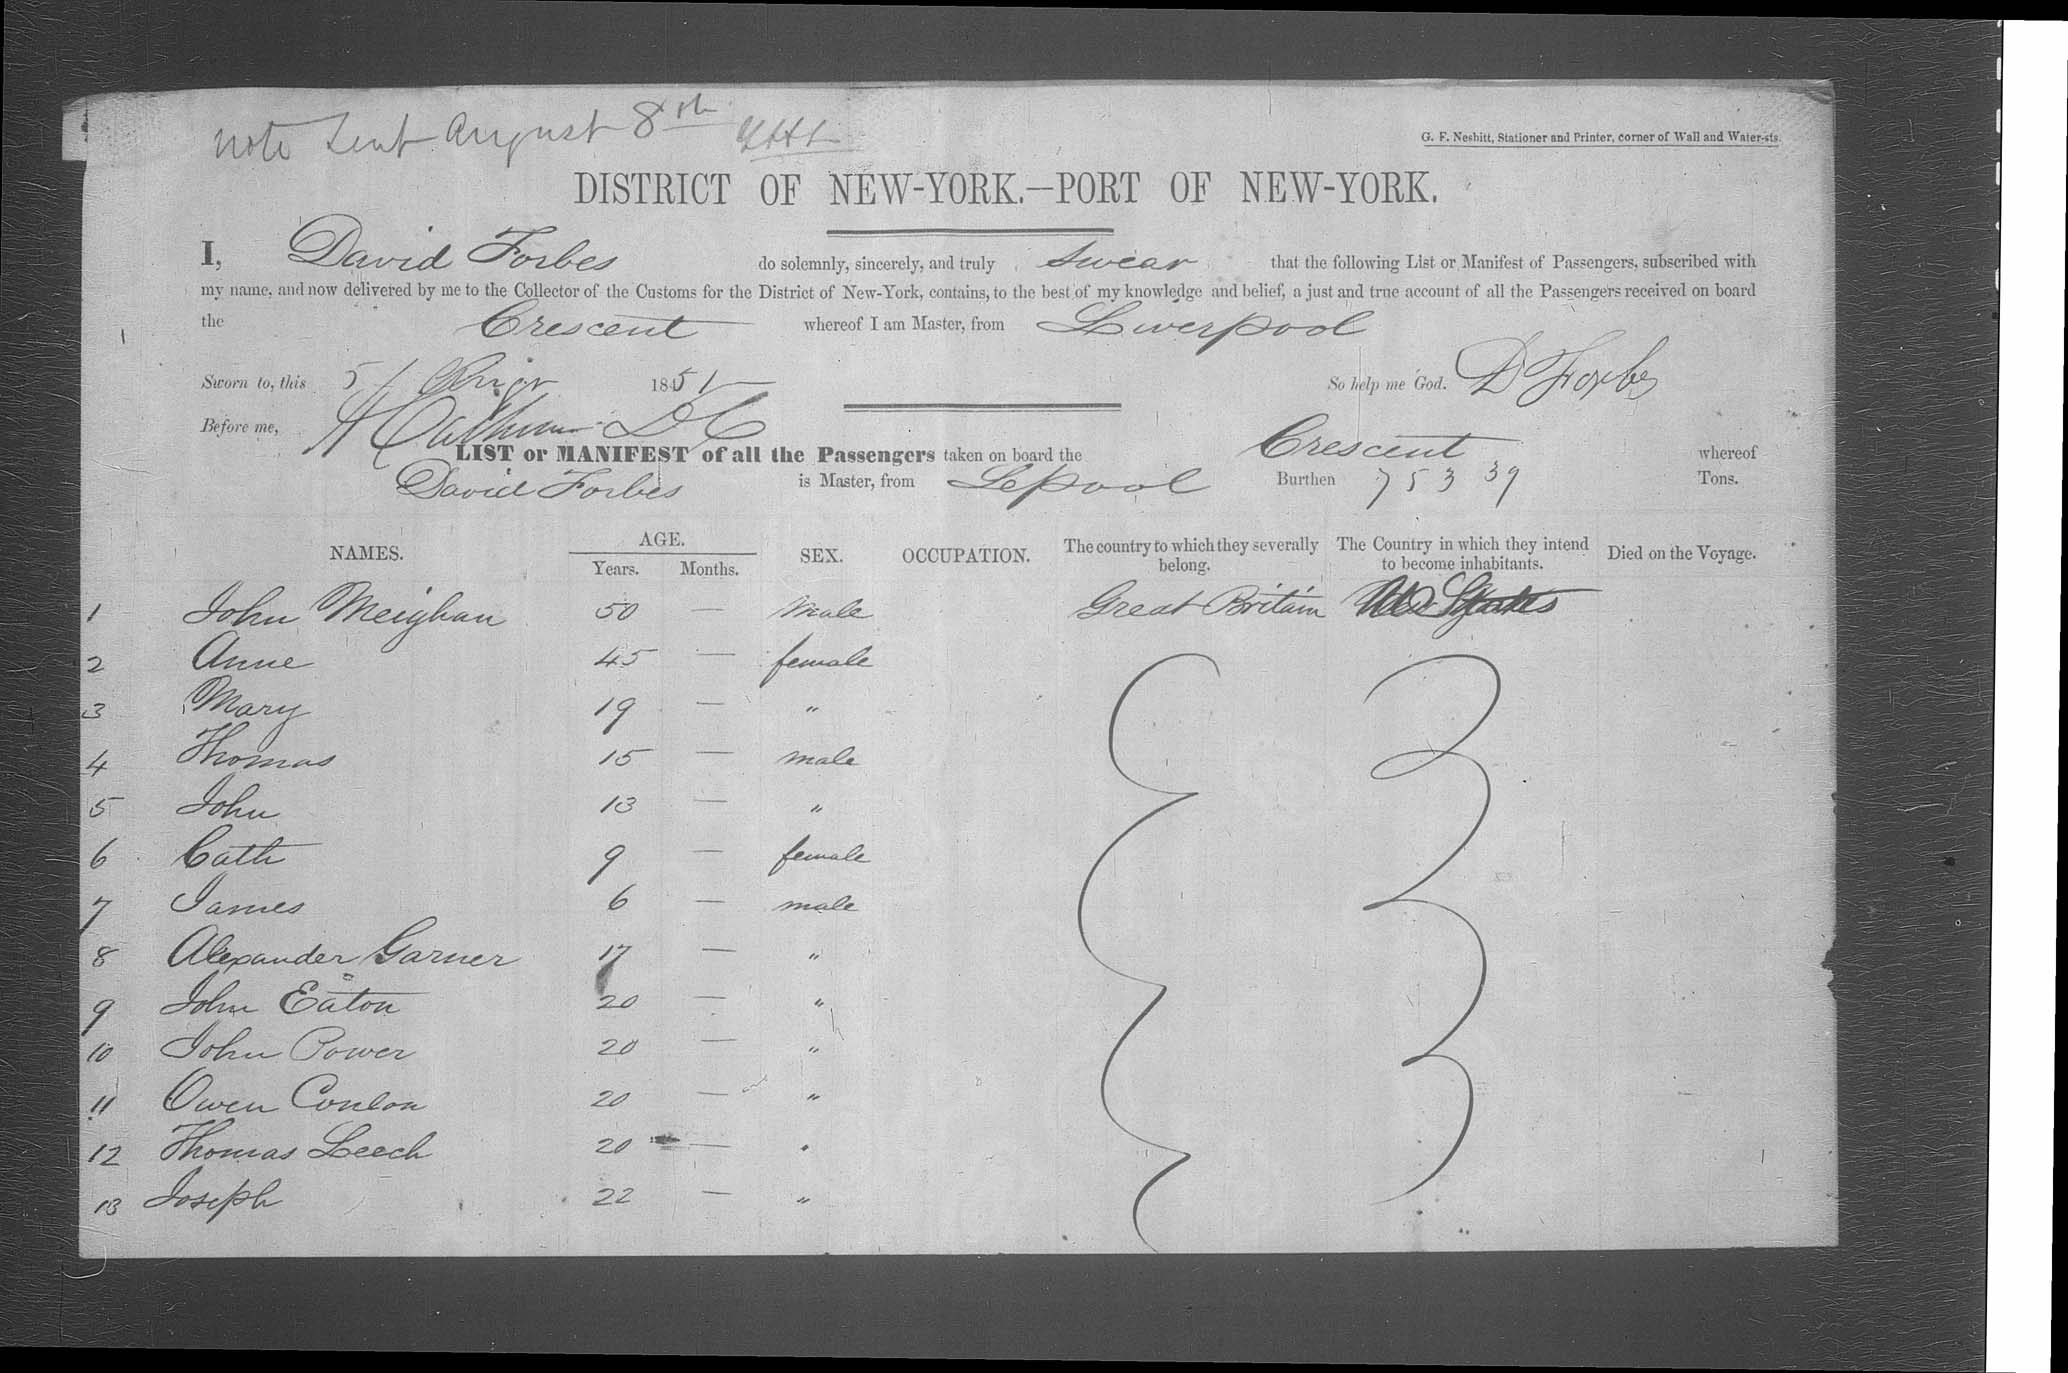 Note Sent August 8th
G. F. Nesbitt, Stationer and Printer, corner of Wall and Water-sts.
DISTRICT OF NEW-YORK.—PORT OF NEW-YORK.
I, David Forbes do solemnly, sincerely, and truly swear that the following List or Manifest of Passengers, subscribed with
my name, and now delivered by me to the Collector of the Customs for the District of New-York, contains, to the best of my knowledge and belief, a just and true account of all the Passengers received on board
the Crescent whereof I am Master, from Liverpool
Sworn to, this 5 1851 So help me God. D Forbes
Before me,
LIST or MANIFEST of all the Passengers taken on board the Crescent whereof
David Forbes is Master, from Lepool Burthen 753 39 Tons.
NAMES. AGE. Years. Months. SEX. OCCUPATION. The country to which they severally belong. The Country in which they intend to become inhabitants. Died on the Voyage.
1 John Meighan 50 — male Great Britain Ud States
2 Anne 45 — female
3 Mary 19 — "
4 Thomas 15 — male
5 John 13 — "
6 Cath 9 — female
7 James 6 — male
8 Alexander Garner 17 — "
9 John Eaton 20 — "
10 John Power 20 — "
11 Owen Conlon 20 — "
12 Thomas Leech 20 — "
13 Joseph 22 — "